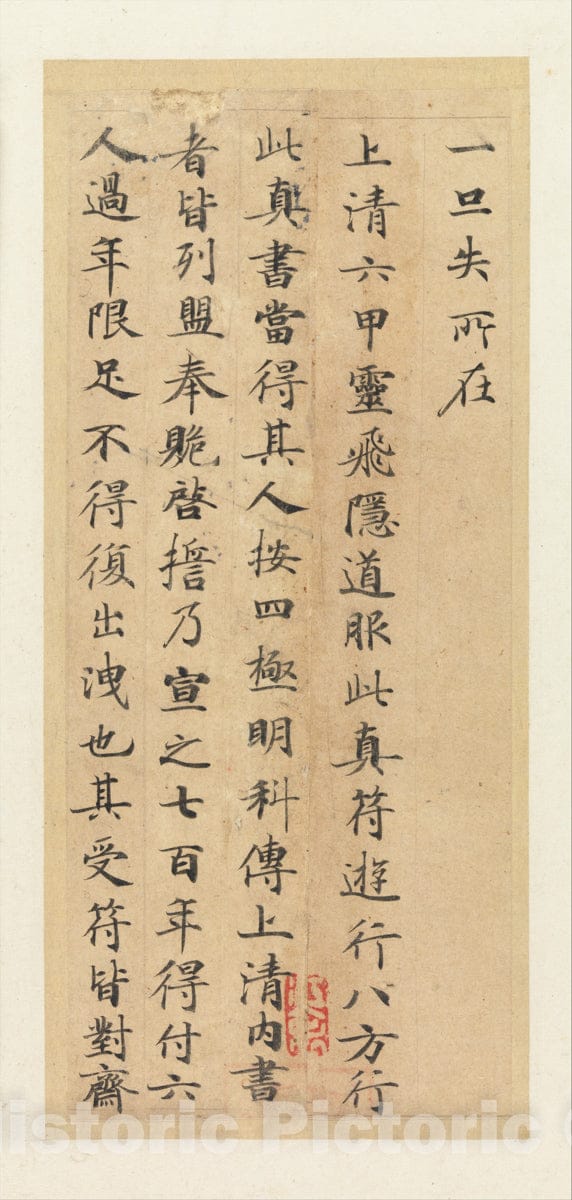 一旦失所在
上清六甲靈飛隱道服此真符遊行八方行
此真書當得其人按四極明科傳上清內書
者皆列盟奉贶啓誓乃宣之七百年得付六
人過年限足不得復出洩也其受符皆對齋
Historic Pictoric